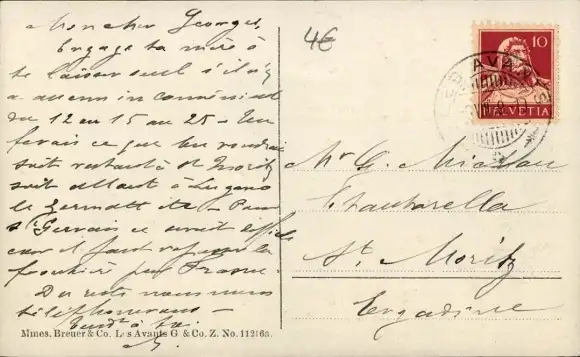 Mon cher Georges,
Engage ta mère à
te laisser seul s'il n'y
a aucun inconvénient
du 12 au 15 au 25 - Tu
ferais ce que tu voudrais
soit restant à St Moritz
soit allant à Lugano
de Zermatt etc - Pour
St Gervais ce serait
car il faut la
frontière par France.
Du reste nous nous
téléphonerons -
à
Mmes. Breuer & Co. Les Avants G & Co. Z. No. 11216a.
4€
10
HELVETIA
LES AVANTS
Mr G.
Chantarella
St. Moritz
Engadine